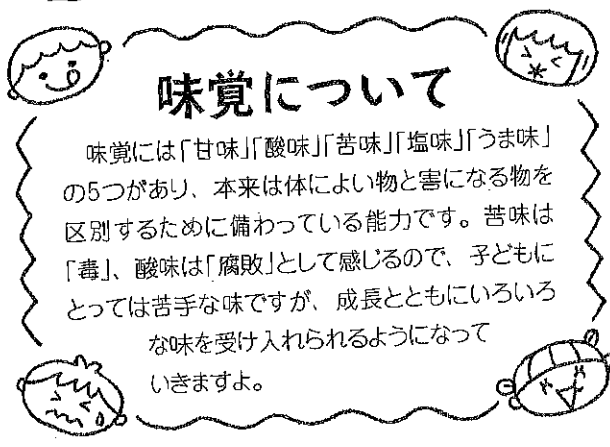 味覚について
味覚には「甘味」「酸味」「苦味」「塩味」「うま味」
の5つがあり、本来は体によい物と害になる物を
区別するために備わっている能力です。苦味は
「毒」、酸味は「腐敗」として感じるので、子どもに
とっては苦手な味ですが、成長とともにいろいろ
な味を受け入れられるようになって
いきますよ。